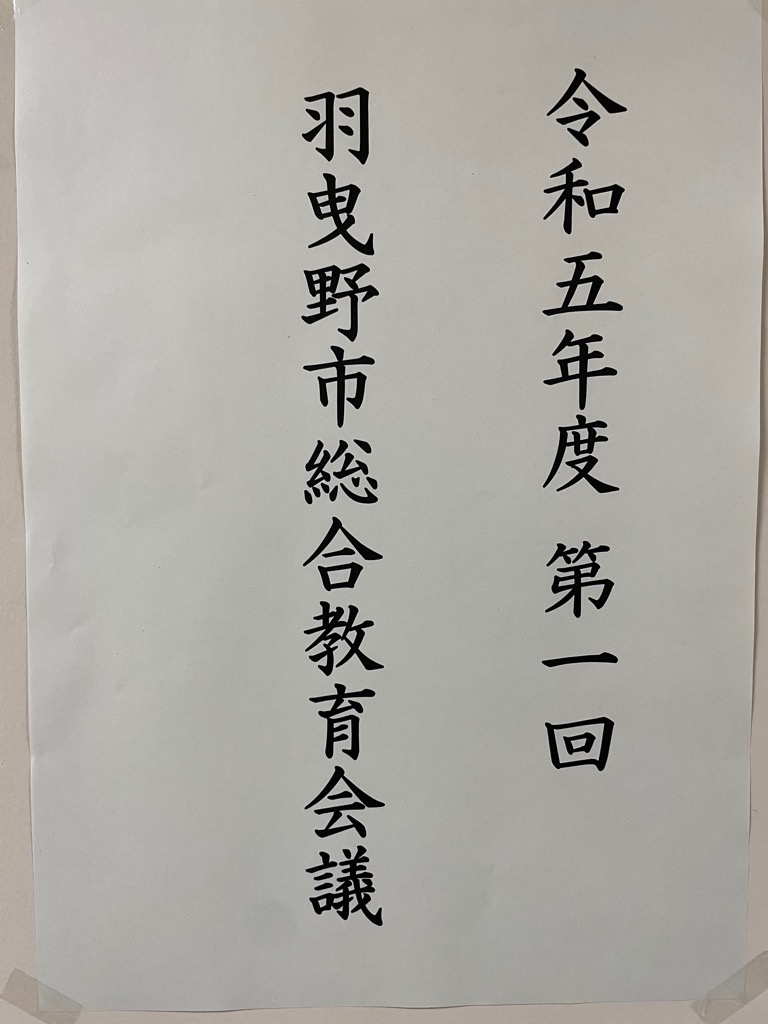 令和五年度 第一回
羽曳野市総合教育会議